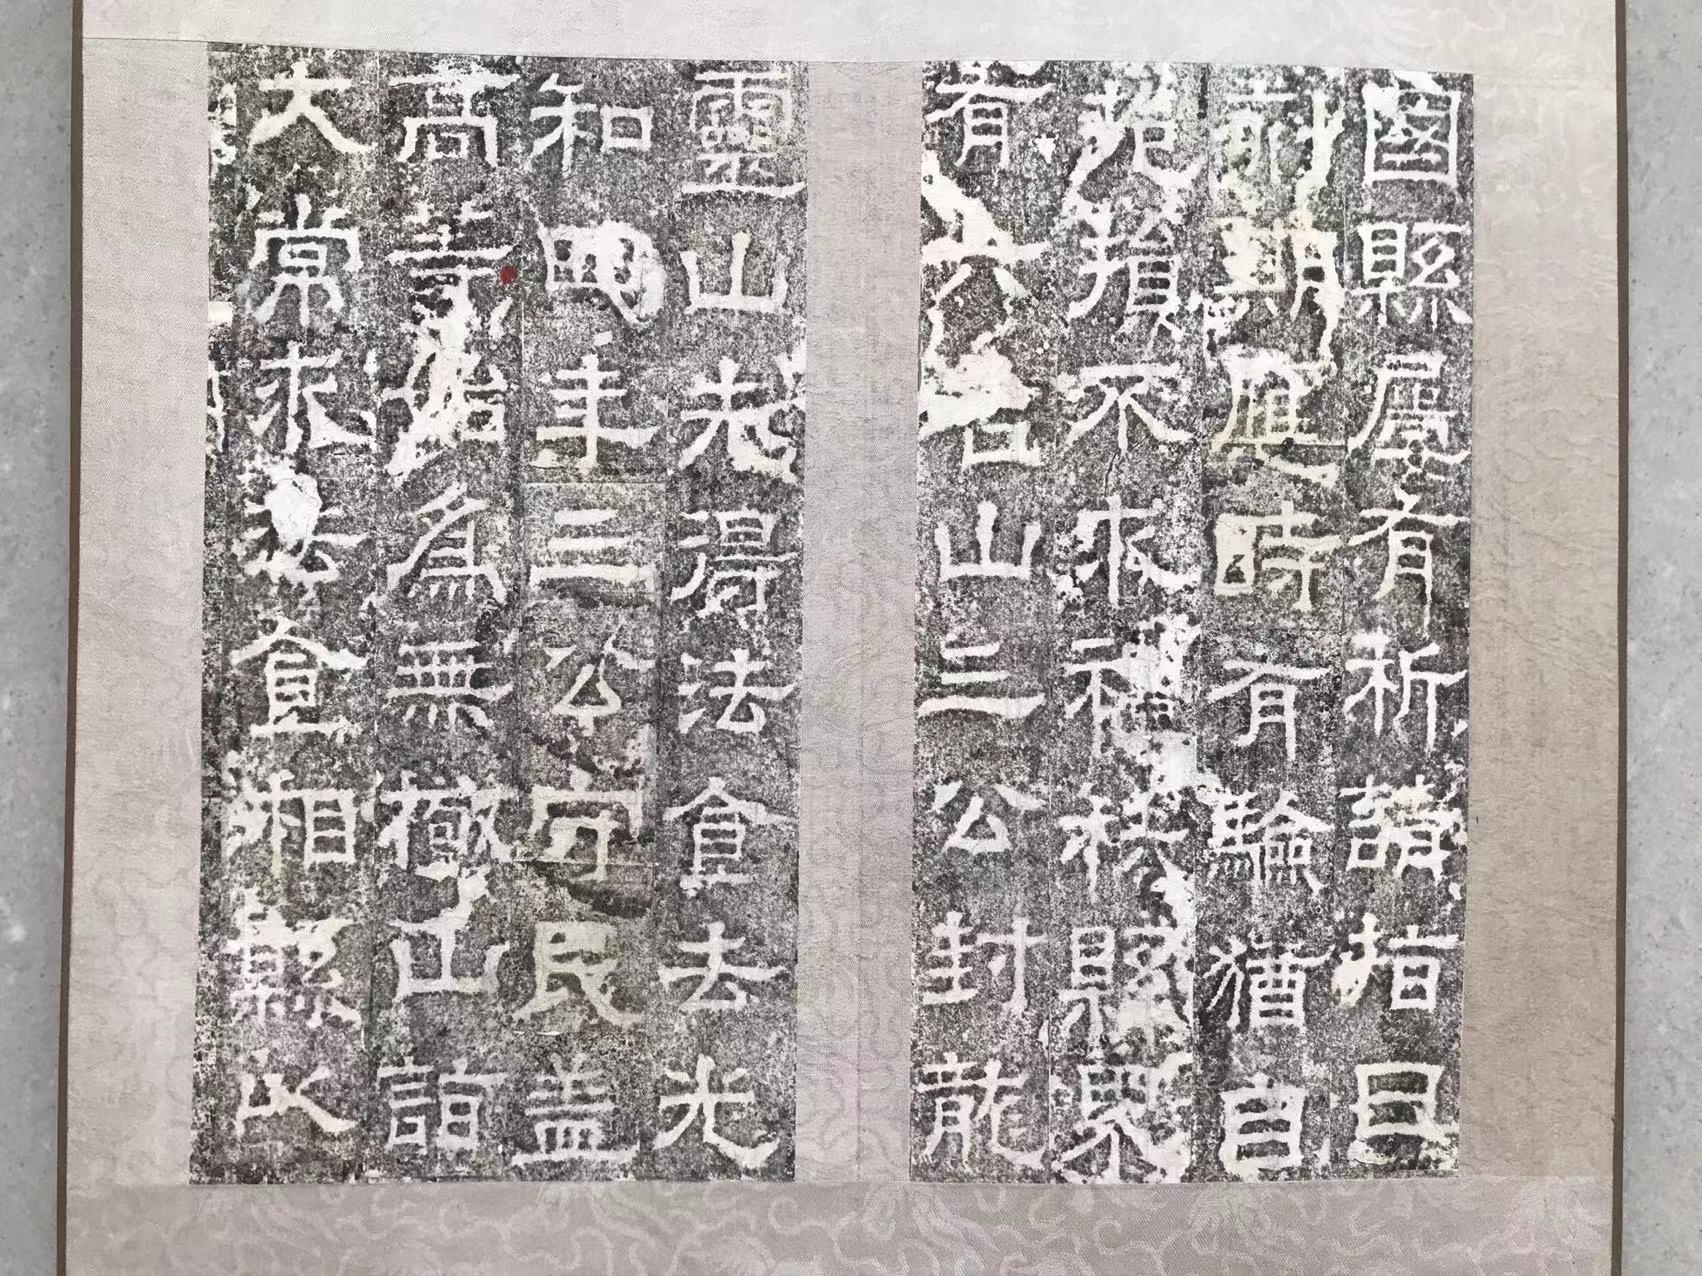 國縣屢有祈請指日
刻期應時有驗猶自
挹損不求禮秩縣界
有六名山三公封龍
靈山先得法食去光
和四年三公守民盖
高等始為無極山詣
大常求法食相縣以